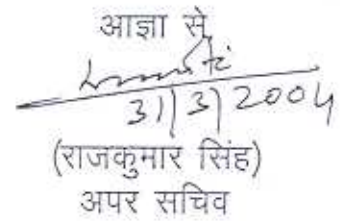 आज्ञा से,
31/3/2004
(राजकुमार सिंह)
अपर सचिव